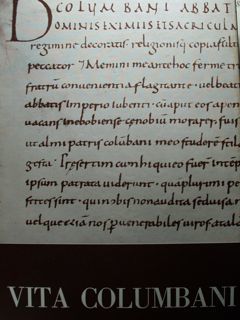 COLUMBANI ABBAT
DOMINIS EXIMIIS ET SACRI CULM
regimine decoratis religionisq copia fulti
peccator Memini me ante hoc ferme tri
fratrũ conuenientia flagitante uel beati
abbatis imperio iubenti
uacans in ebobiense cenobiũ morarer
ut almi patris columbani meo studerẽ stilo
gesta Presertim cum hi quieo fuer
ipsũm patrata uiderunt quãplurimi pe
fetessint quinobis non audita sed uisa
uel quæ &iã nos p uenerabiles uiros
VITA COLUMBANI